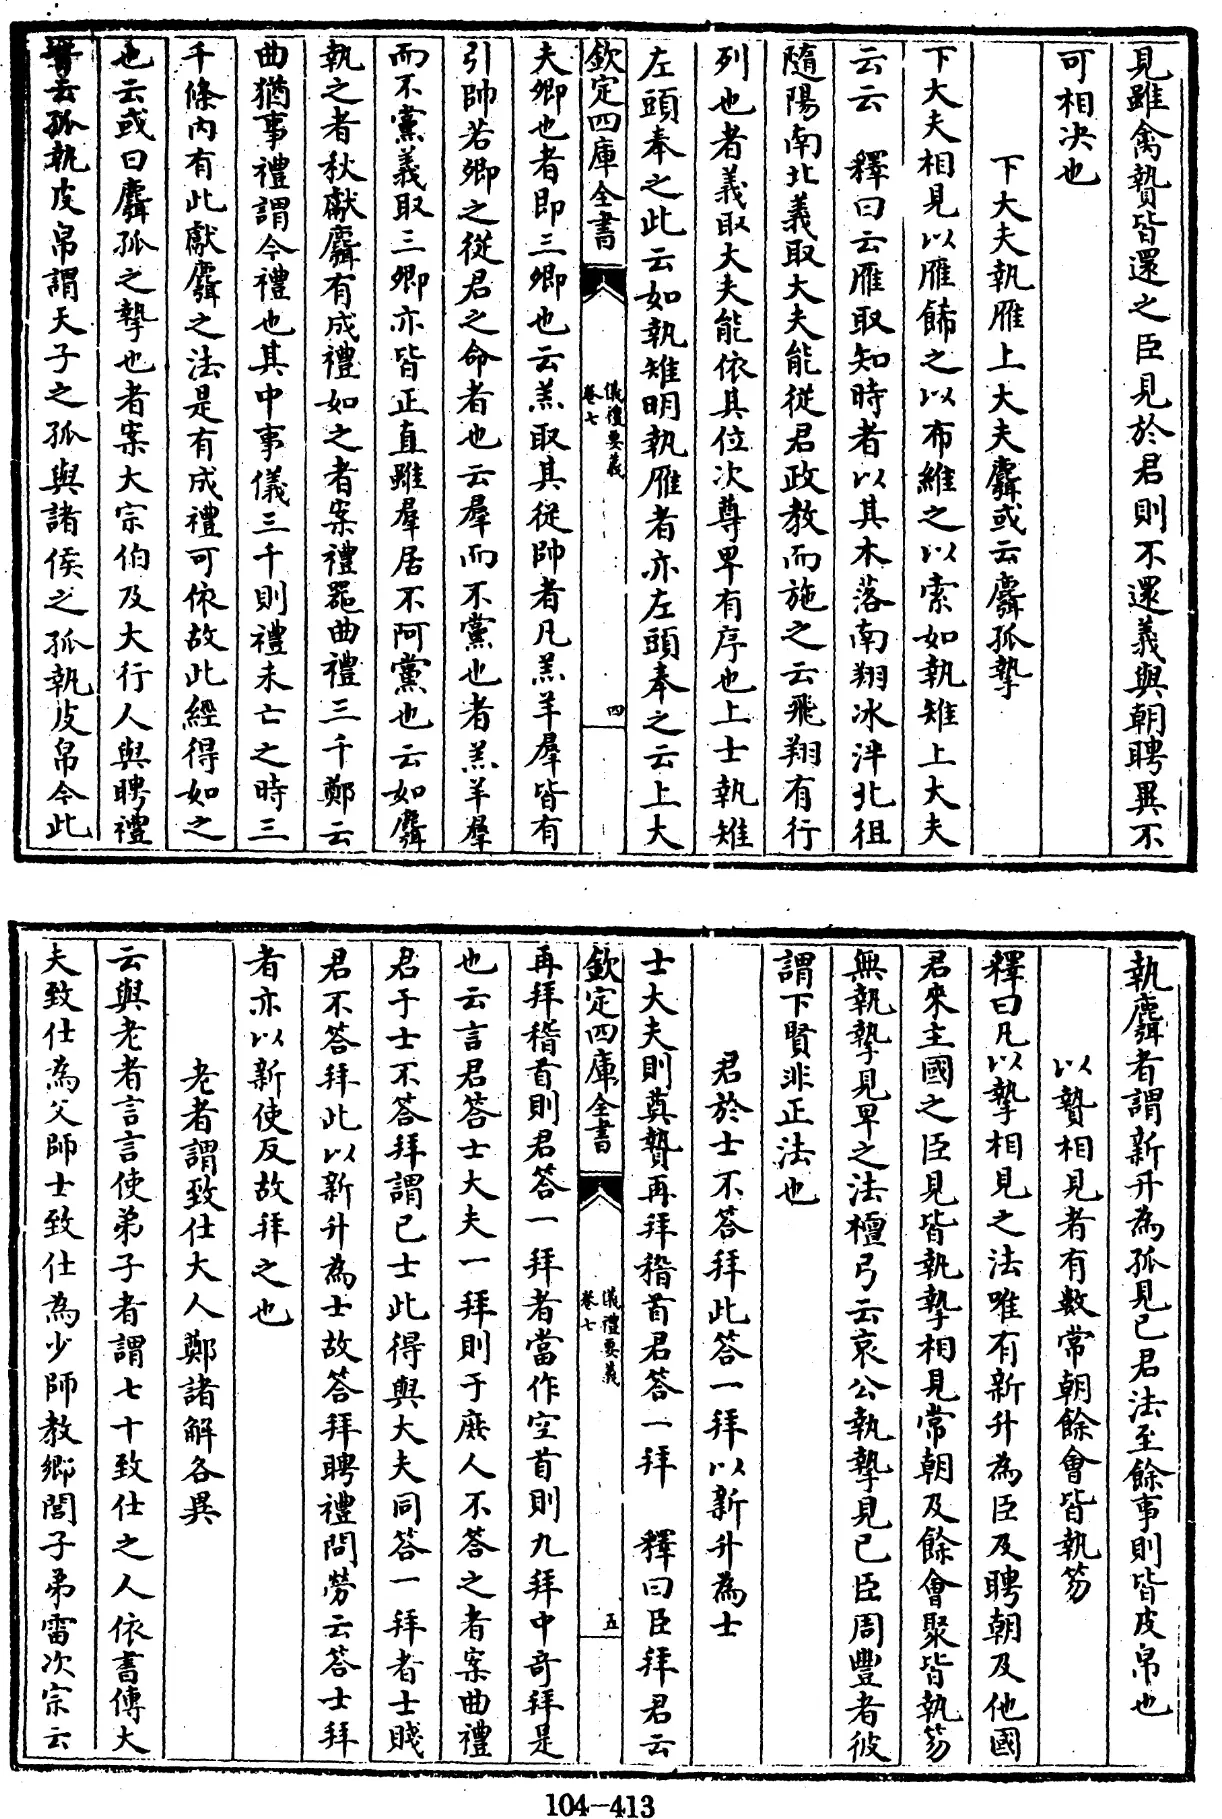 見雖禽贄皆還之臣見於君則不還義與朝聘異不
可相决也
下大夫執雁上大夫麛或云麛孤摯
下大夫相見以雁餙之以布維之以索如執雉上大夫
云云　釋曰云雁取知時者以其木落南翔冰泮北徂
隨陽南北義取大夫能從君政教而施之云飛翔有行
列也者義取大夫能依其位次尊卑有序也上士執雉
左頭奉之此云如執雉明執雁者亦左頭奉之云上大
欽定四庫全書
儀禮要義
卷七
四
夫卿也者即三卿也云羔取其從帥者凡羔羊羣皆有
引帥若卿之從君之命者也云羣而不黨也者羔羊羣
而不黨義取三卿亦皆正直雖羣居不阿黨也云如麛
執之者秋獻麛有成禮如之者案禮器曲禮三千鄭云
曲猶事禮謂今禮也其中事儀三千則禮未亡之時三
千條内有此獻麛之法是有成禮可依故此經得如之
也云或曰麛孤之摯也者案大宗伯及大行人與聘禮
皆云孤執皮帛謂天子之孤與諸侯之孤執皮帛今此
執麛者謂新升為孤見已君法至餘事則皆皮帛也
以贄相見者有數常朝餘會皆執笏
釋曰凡以摯相見之法唯有新升為臣及聘朝及他國
君來主國之臣見皆執摯相見常朝及餘會聚皆執笏
無執摯見卑之法檀弓云哀公執摯見已臣周豐者彼
謂下賢非正法也
君於士不答拜此答一拜以新升為士
士大夫則奠贄再拜稽首君答一拜　釋曰臣拜君云
欽定四庫全書
儀禮要義
卷七
五
再拜稽首則君答一拜者當作空首則九拜中奇拜是
也云言君答士大夫一拜則于庶人不答之者案曲禮
君于士不答拜謂已士此得與大夫同答一拜者士賤
君不答拜此以新升為士故答拜聘禮問勞云答士拜
者亦以新使反故拜之也
老者謂致仕大人鄭諸解各異
云與老者言言使弟子者謂七十致仕之人依書傳大
夫致仕為父師士致仕為少師教鄉閭子弟雷次宗云
104—413